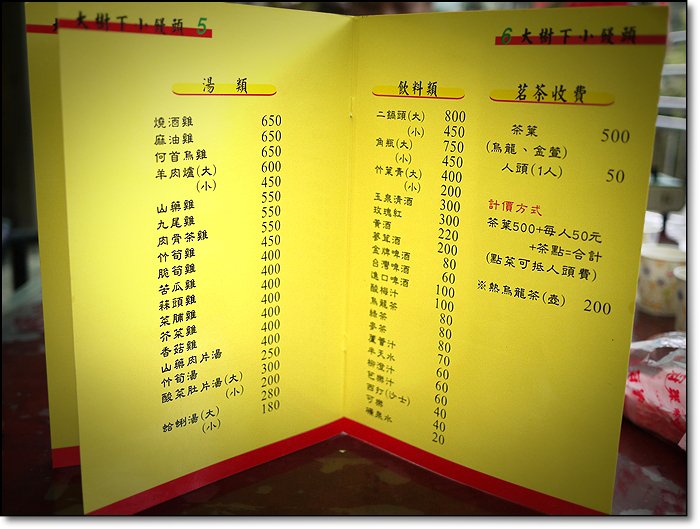 大樹下小饅頭 5
湯 類
燒酒雞 650
麻油雞 650
何首烏雞 650
羊肉爐(大) 600
(小) 450
山藥雞 550
九尾雞 550
肉骨茶雞 550
竹筍雞 450
脆筍雞 400
苦瓜雞 400
蒜頭雞 400
菜脯雞 400
芥菜雞 400
香菇雞 400
山藥肉片湯 400
竹筍湯 250
酸菜肚片湯(大) 300
(小) 200
蛤蜊湯(大) 280
(小) 180
6 大樹下小饅頭
飲料類
二鍋頭(大) 800
(小) 450
角瓶(大) 750
(小) 450
竹葉青(大) 400
(小) 200
玉泉清酒 300
玫瑰紅 300
黃酒 220
蔘茸酒 200
金牌啤酒 80
台灣啤酒 60
進口啤酒 100
酸梅汁 100
烏龍茶 80
綠茶 80
麥茶 80
蘆薈汁 70
半天水 60
柳橙汁 60
芭樂汁 60
西打(沙士) 40
可樂 40
礦泉水 20
茗茶收費
茶葉 500
(烏龍、金萱)
人頭(1人) 50
計價方式
茶葉500+每人50元
+茶點=合計
(點菜可抵人頭費)
※熱烏龍茶(壺) 200